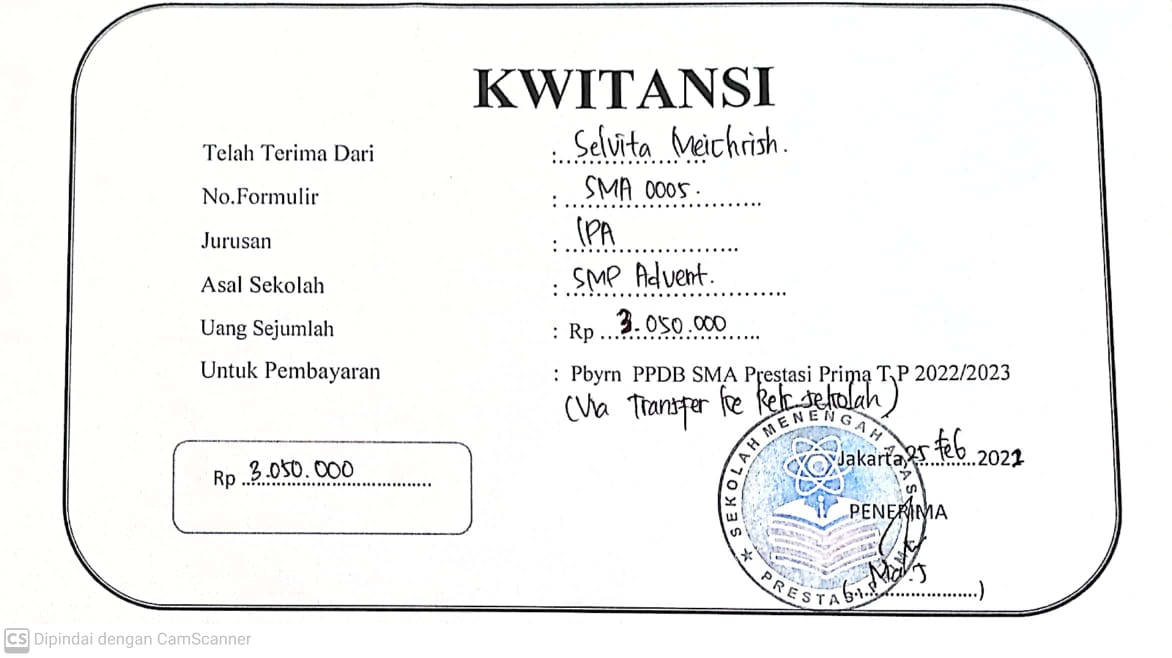 KWITANSI
Telah Terima Dari : Selvita Meichrish.
No.Formulir : SMA 0005.
Jurusan : IPA
Asal Sekolah : SMP Advent.
Uang Sejumlah : Rp 3.050.000
Untuk Pembayaran : Pbyrn PPDB SMA Prestasi Prima T.P 2022/2023
(Via Transfer ke Rek. sekolah)
SEKOLAH MENENGAH ATAS
Jakarta, 25 Feb 2022
Rp 3.050.000
PENERIMA
PRESTASI
CS Dipindai dengan CamScanner